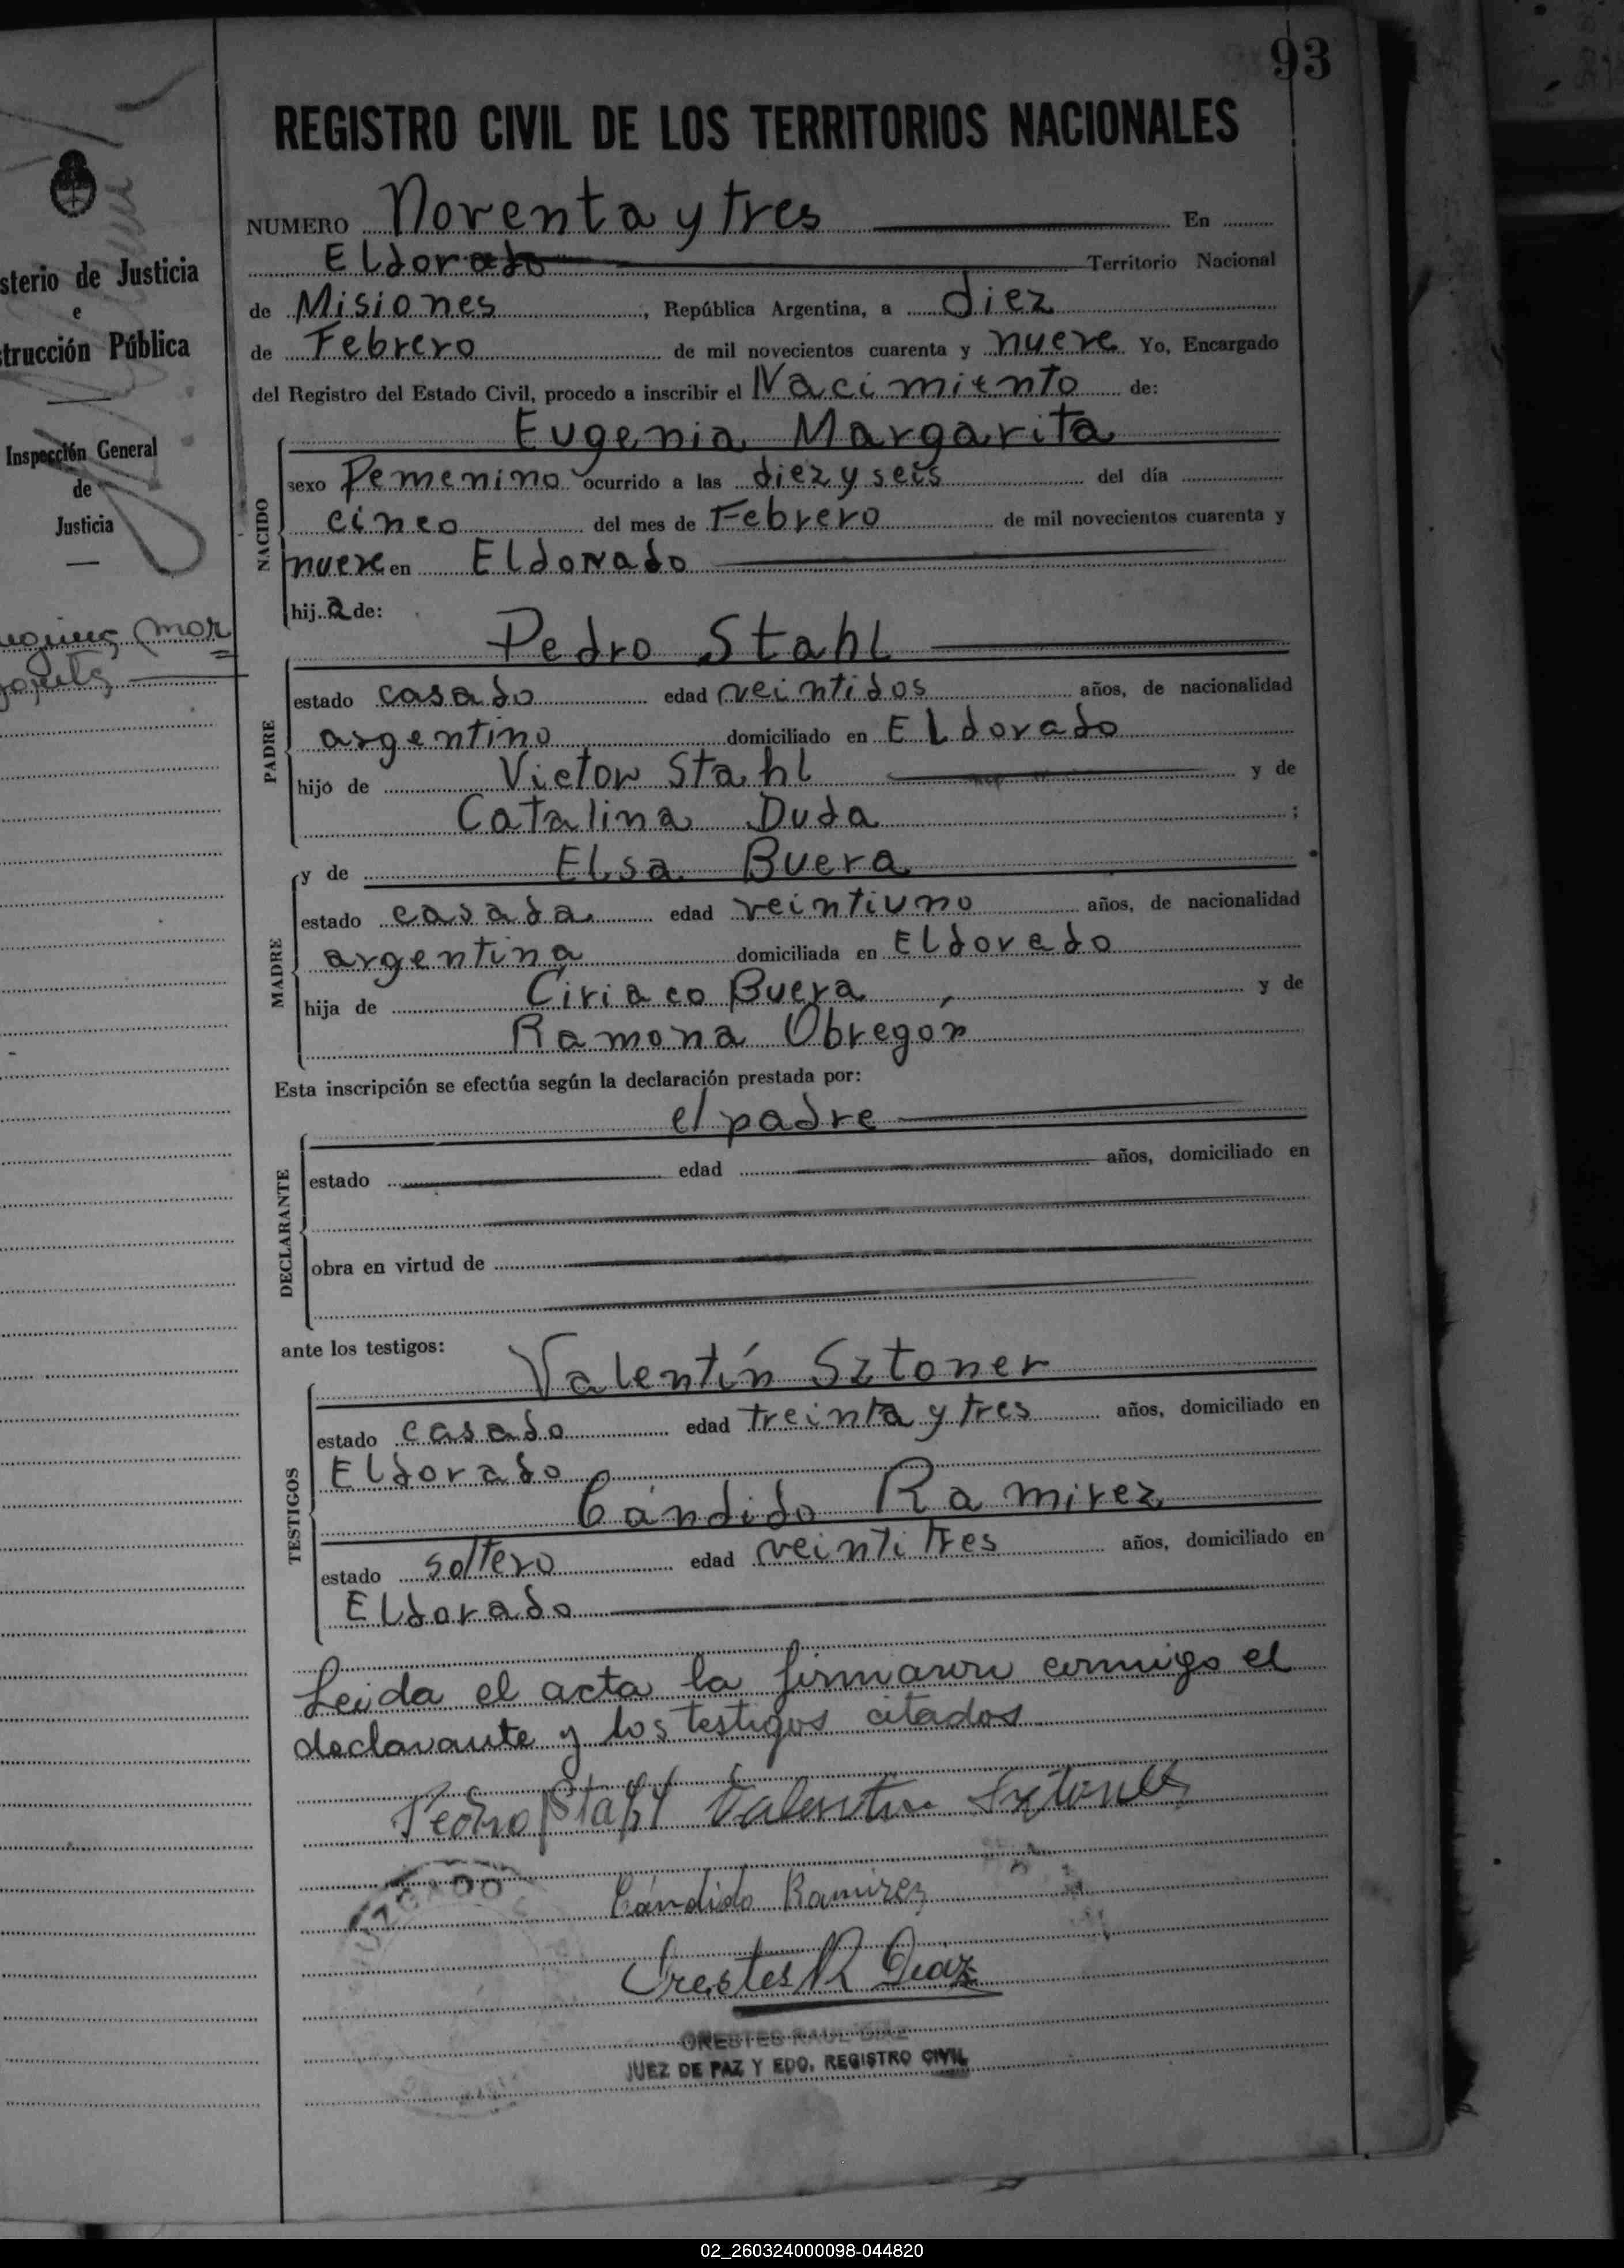 93
REGISTRO CIVIL DE LOS TERRITORIOS NACIONALES
sterio de Justicia
e
trucción Pública
Inspección General
de
Justicia
NUMERO Noventa y tres En
Eldorado Territorio Nacional
de Misiones, República Argentina, a diez
de Febrero de mil novecientos cuarenta y nueve Yo, Encargado
del Registro del Estado Civil, procedo a inscribir el Nacimiento de:
NACIDO
Eugenia Margarita
sexo Femenino ocurrido a las diez y seis del día
cinco del mes de Febrero de mil novecientos cuarenta y
nueve en Eldorado
hija de:
PADRE
Pedro Stahl
estado casado edad veintidos años, de nacionalidad
argentino domiciliado en Eldorado
hijo de Victor Stahl y de
Catalina Duda ;
MADRE
y de Elsa Buera
estado casada edad veintiuno años, de nacionalidad
argentina domiciliada en Eldorado
hija de Ciriaco Buera, y de
Ramona Obregón
Esta inscripción se efectúa según la declaración prestada por:
DECLARANTE
el padre
estado edad años, domiciliado en
obra en virtud de
ante los testigos:
TESTIGOS
Valentín Sztoner
estado casado edad treinta y tres años, domiciliado en
Eldorado
Cándido Ramirez
estado soltero edad veintitres años, domiciliado en
Eldorado
Leida el acta la firmaron conmigo el
declarante y los testigos citados
Pedro Stahl Valentin
Cándido Ramirez
Orestes R Diaz
ORESTES RAUL DIAZ
JUEZ DE PAZ Y EDO. REGISTRO CIVIL
02_260324000098-044820